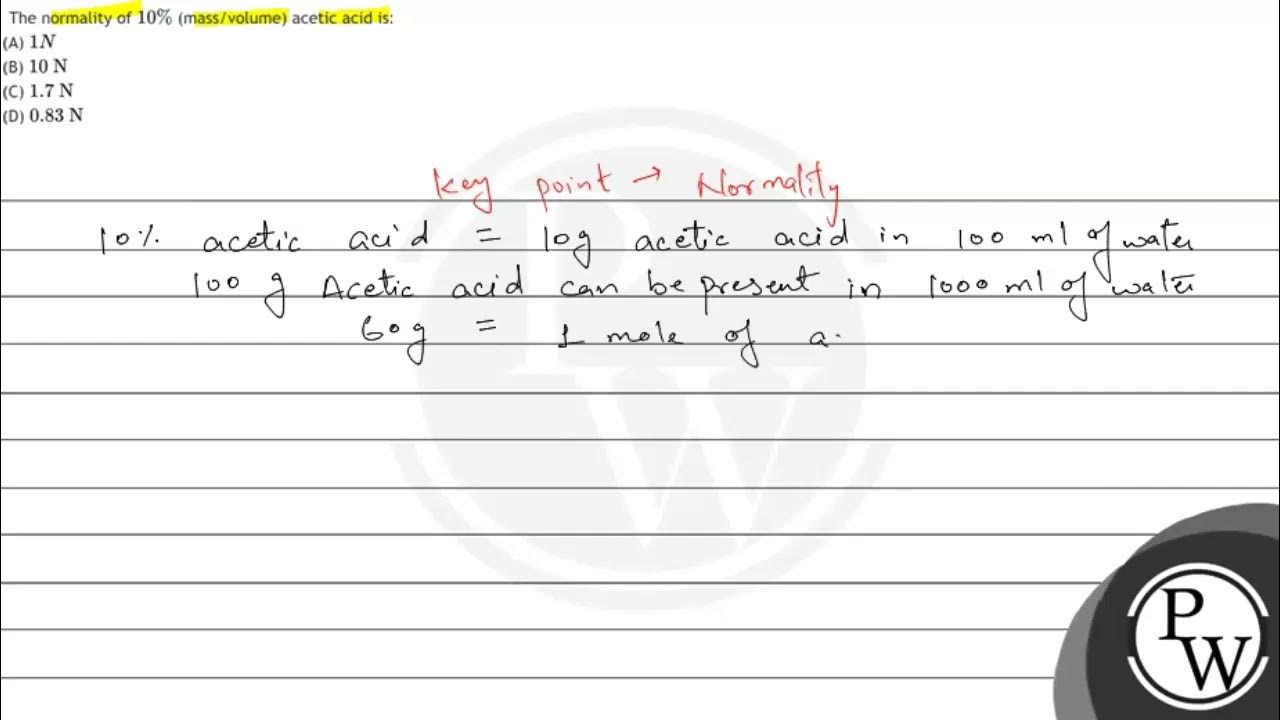 The normality of 10% (mass/volume) acetic acid is:
(A) 1N
(B) 10 N
(C) 1.7 N
(D) 0.83 N
Key point → Normality
10% acetic acid = 10g acetic acid in 100 ml of water
100 g Acetic acid can be present in 1000 ml of water
60g = 1 mole of a.
PW
PW